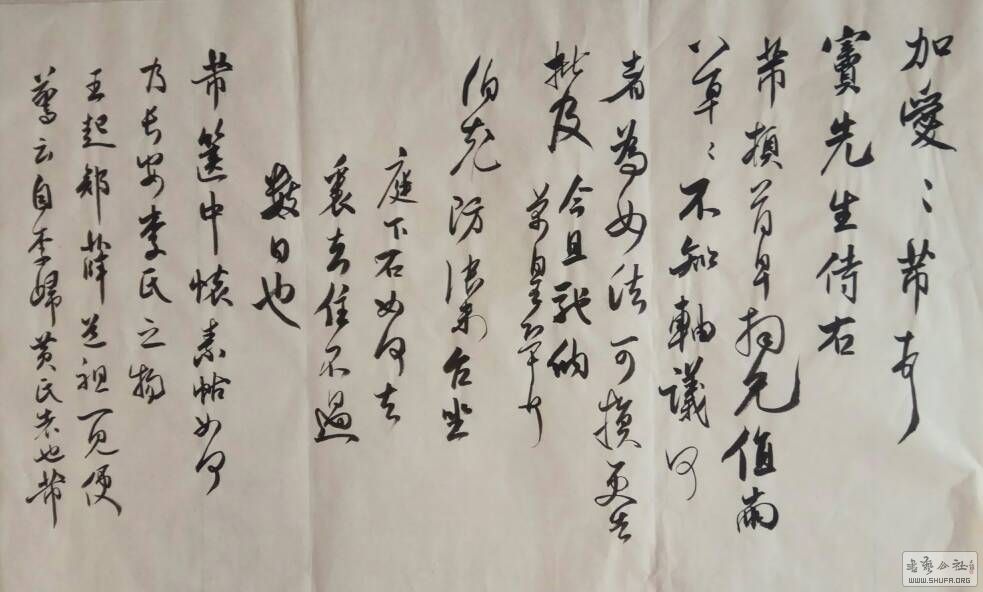 加愛〻芾頓首
竇先生侍右
芾頓首早拜見值雨
草〻不知軸議何
者為如法可換更告
批及今且馳納
芾皇恐
伯充防禦台坐
庭下石如何去
裏去住不過
數日也
芾篋中懷素帖如何
乃長安李氏之物
王起部薛道祖一見便
驚云自李歸黃氏者也芾
書藝公社
WWW.SHUFA.ORG